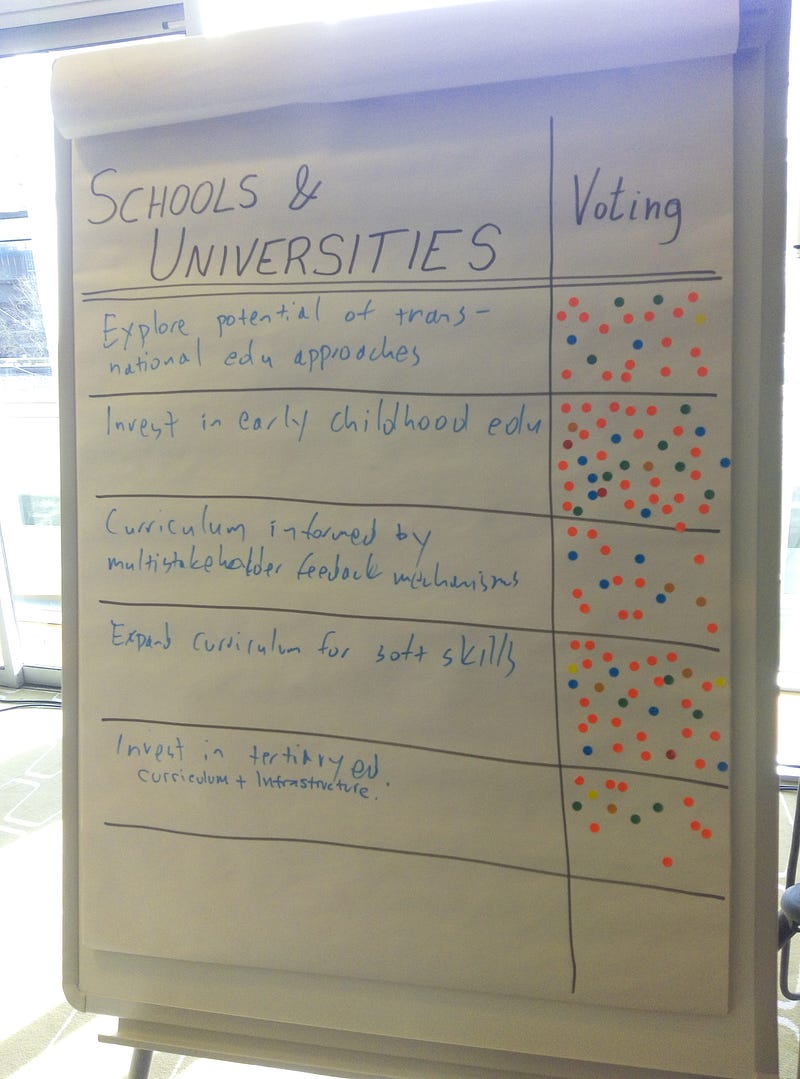 SCHOOLS &
UNIVERSITIES
Voting
Explore potential of trans-
national edu approaches
Invest in early childhood edu
Curriculum informed by
multistakeholder feedback mechanisms
Expand curriculum for soft skills
Invest in tertiary ed.
curriculum + Infrastructure.